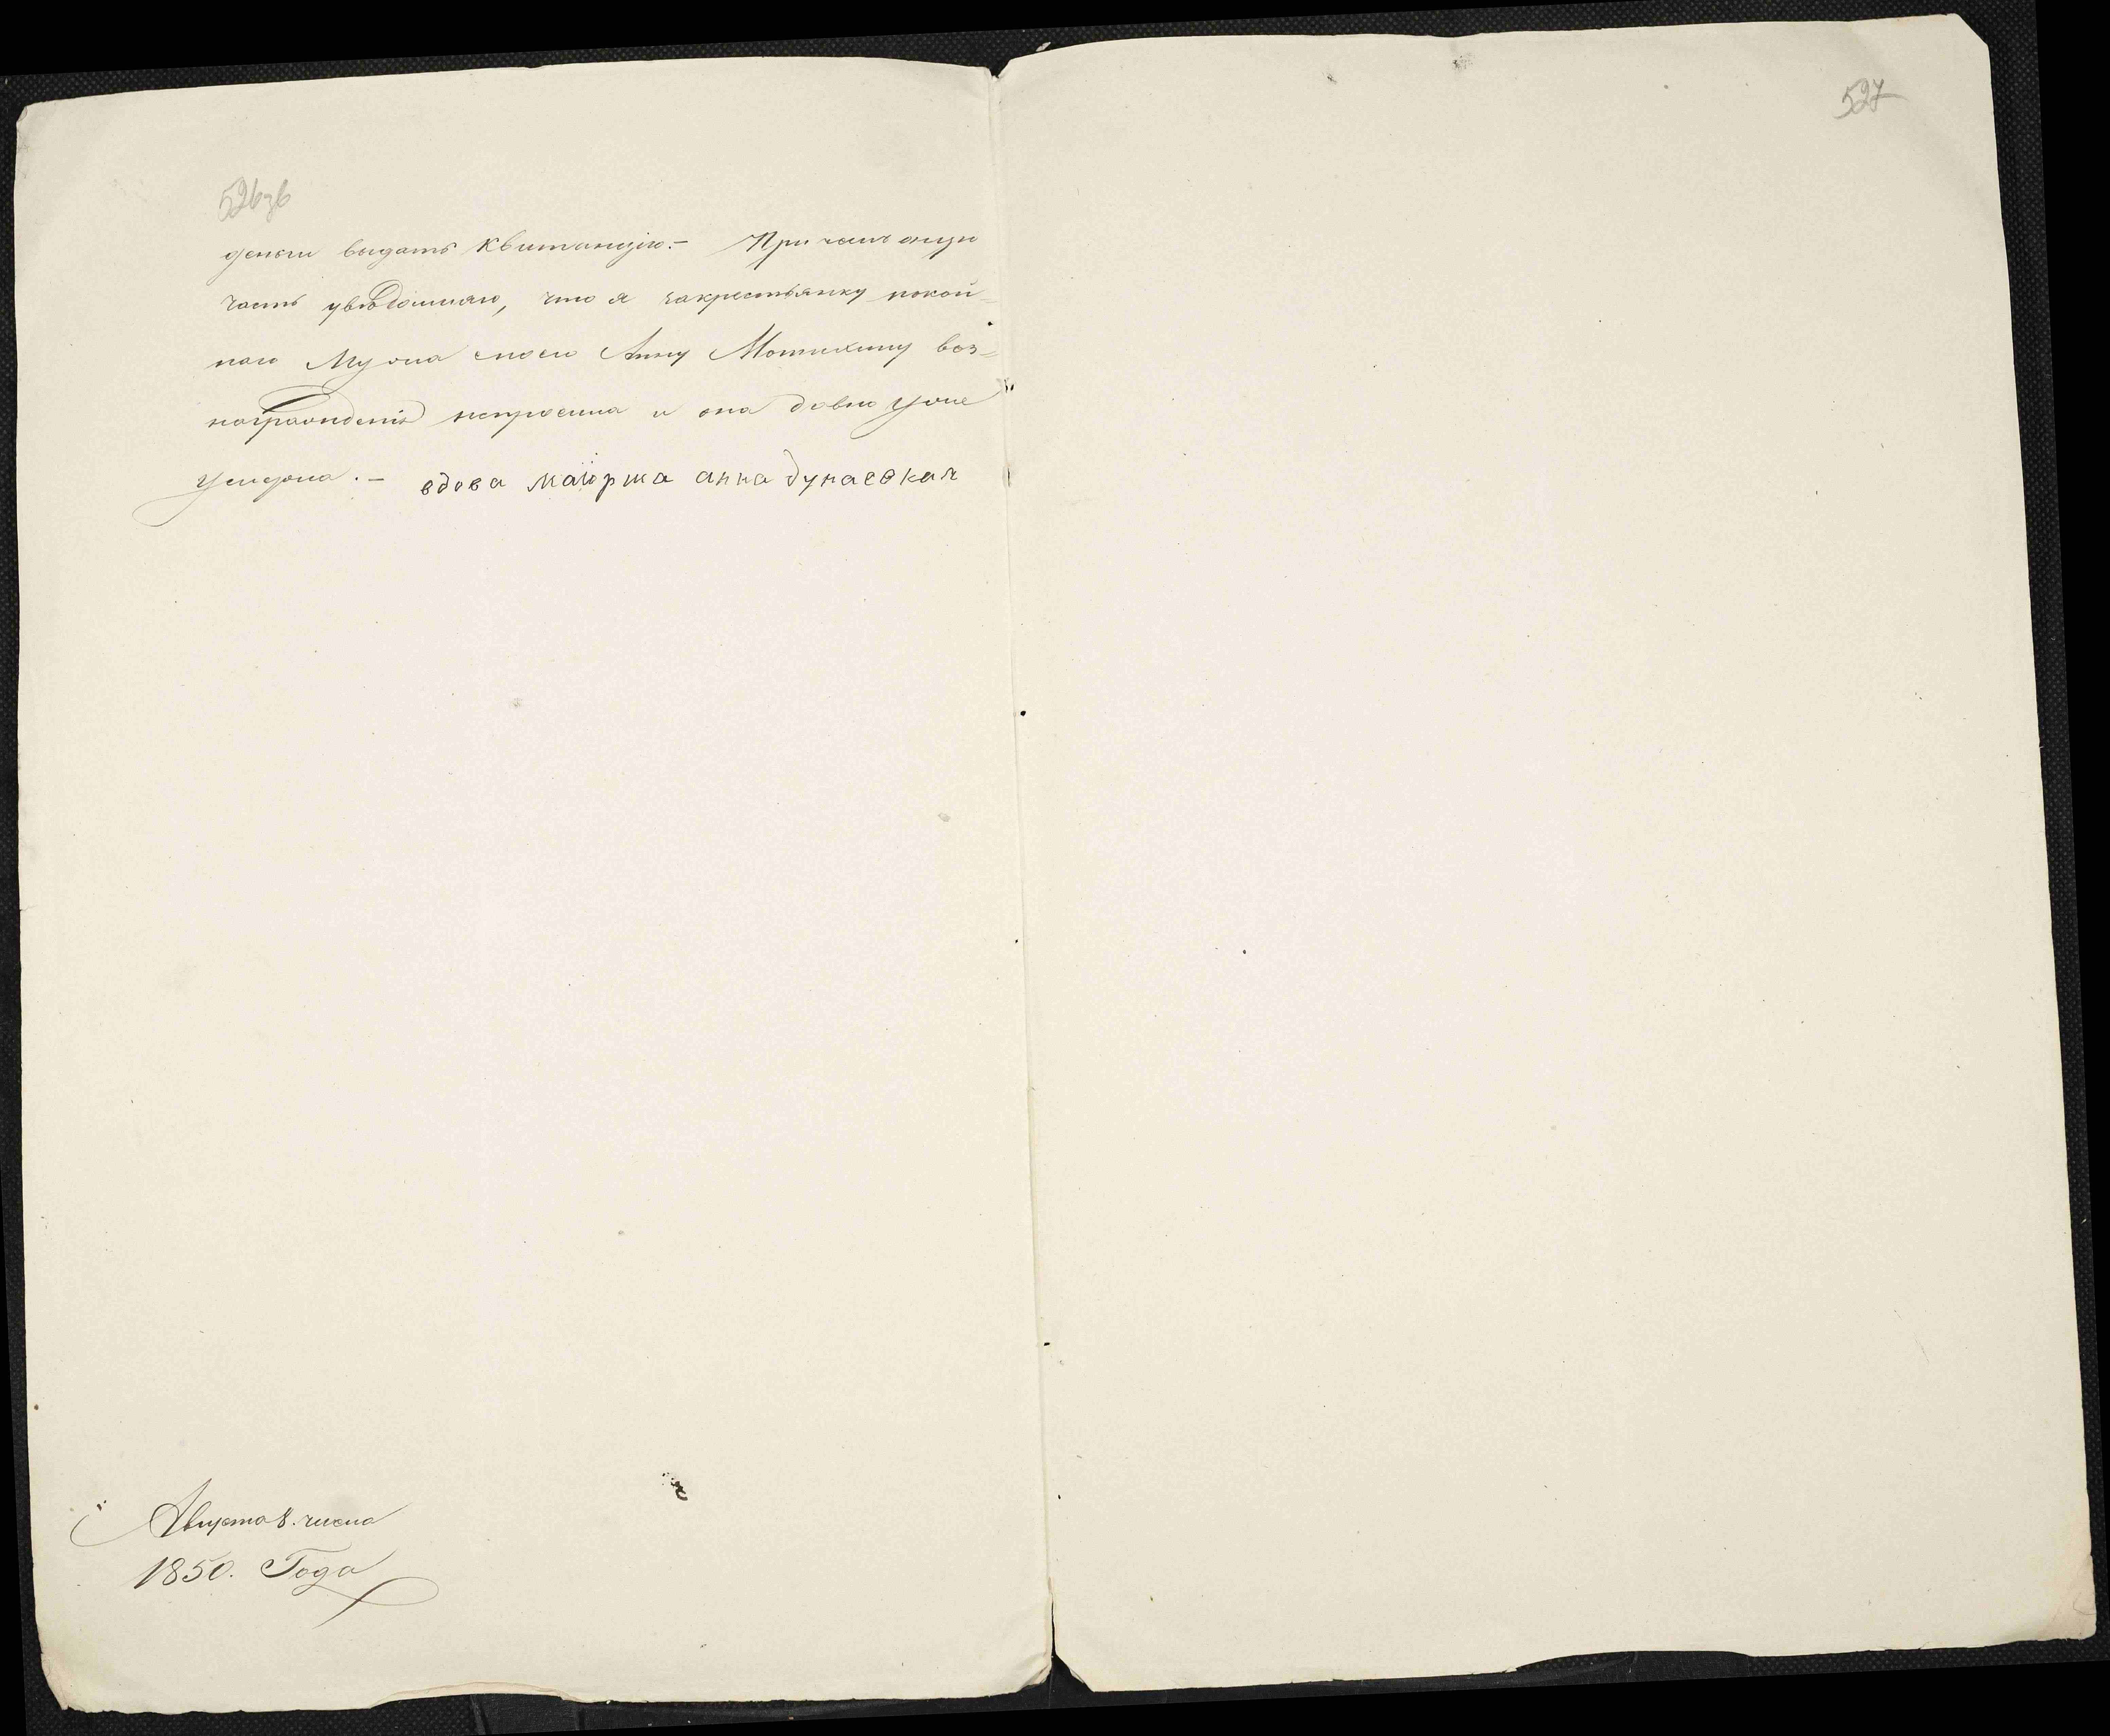 526 зв
деньги выдать квитанцію. – При чемъ оную
часть увѣдомляю, что я закрестьянку покой=
наго Мужа моего Анну Мотихину воз=
награжденія непросила и она давно уже
умерла. – вдова маіорша анна дунаевкая
Августа 8. числа
1850. Года
527